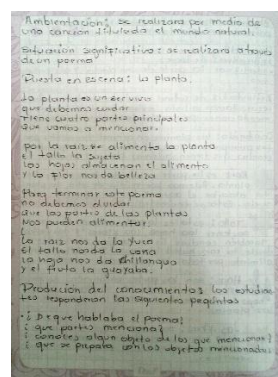 Ambientación: se realizara por medio de
una canción titulada el mundo natural.
situación significativa: se realizara através
de un poema
Puesta en escena: la planta.
la planta es un ser vivo
que debemos cuidar
tiene cuatro partes principales
que vamos a mencionar.
por la raiz se alimenta la planta
el tallo la sujeta
las hojas almacenan el alimento
y la flor nos da belleza
Para terminar este poema
no debemos olvidar
que las partes de las plantas
nos pueden alimentar.
la raiz nos da la yuca
el tallo nos da la cana
la hoja nos da chillangua
y el fruto la guayaba.
Producion del conocimiento: los estudian
tes responderan las siguientes preguntas
¿ De que hablaba el poema?
¿ que partes menciona?
¿ conoces algun objeto de los que menciona?
¿ que se prepara con los objetos mencionados